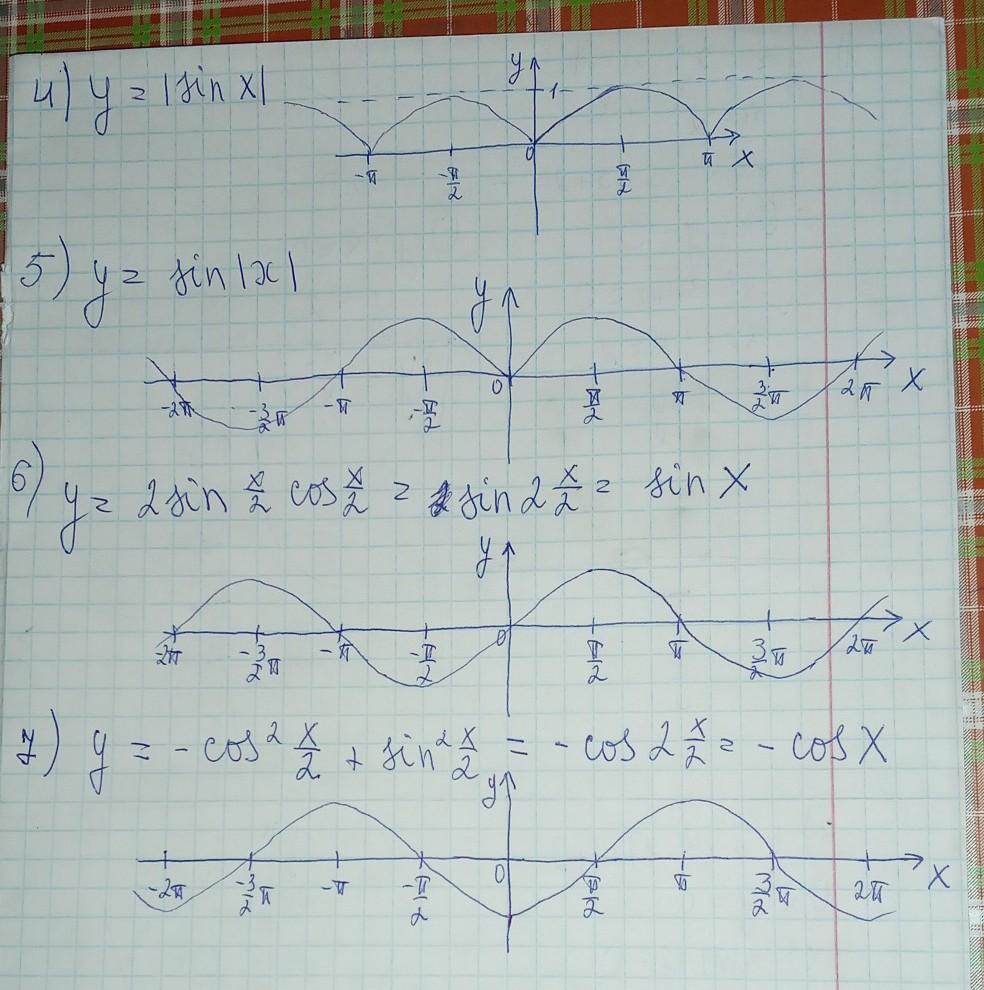 4) y = |sin x|
y
1
-π -π/2 0 π/2 π x
5) y = sin |x|
y
-2π -3/2 π -π -π/2 0 π/2 π 3/2 π 2π x
6) y = 2 sin x/2 cos x/2 = sin 2 x/2 = sin x
y
-2π -3/2 π -π -π/2 0 π/2 π 3/2 π 2π x
7) y = - cos² x/2 + sin² x/2 = - cos 2 x/2 = - cos x
y
-2π -3/2 π -π -π/2 0 π/2 π 3/2 π 2π x